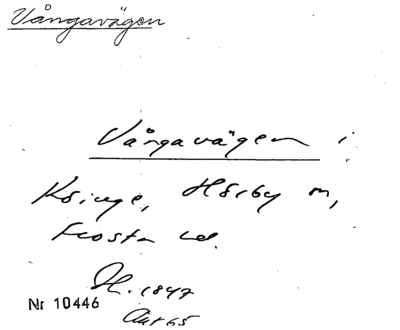 Vångavägen
Vångavägen i
Ksinge, Hörby m,
Frosta hd.
H. 1847
Nr 10446
65